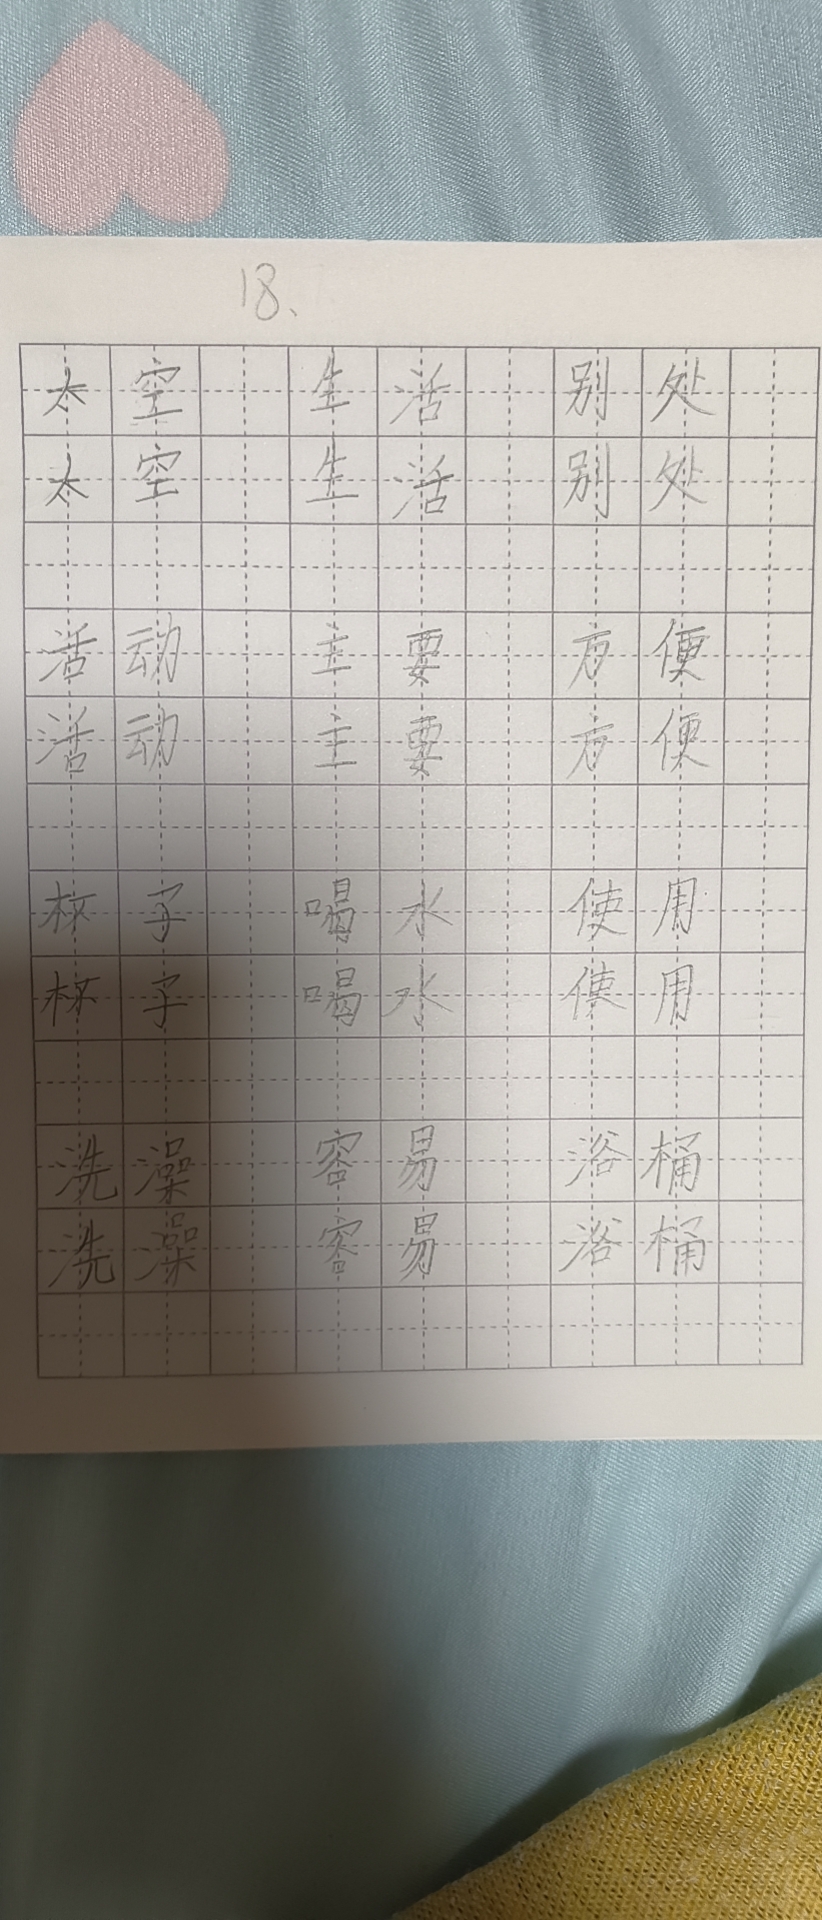 18、
太空 生活 别处
太空 生活 别处
活动 主要 方便
活动 主要 方便
杯子 喝水 使用
杯子 喝水 使用
洗澡 容易 浴桶
洗澡 容易 浴桶